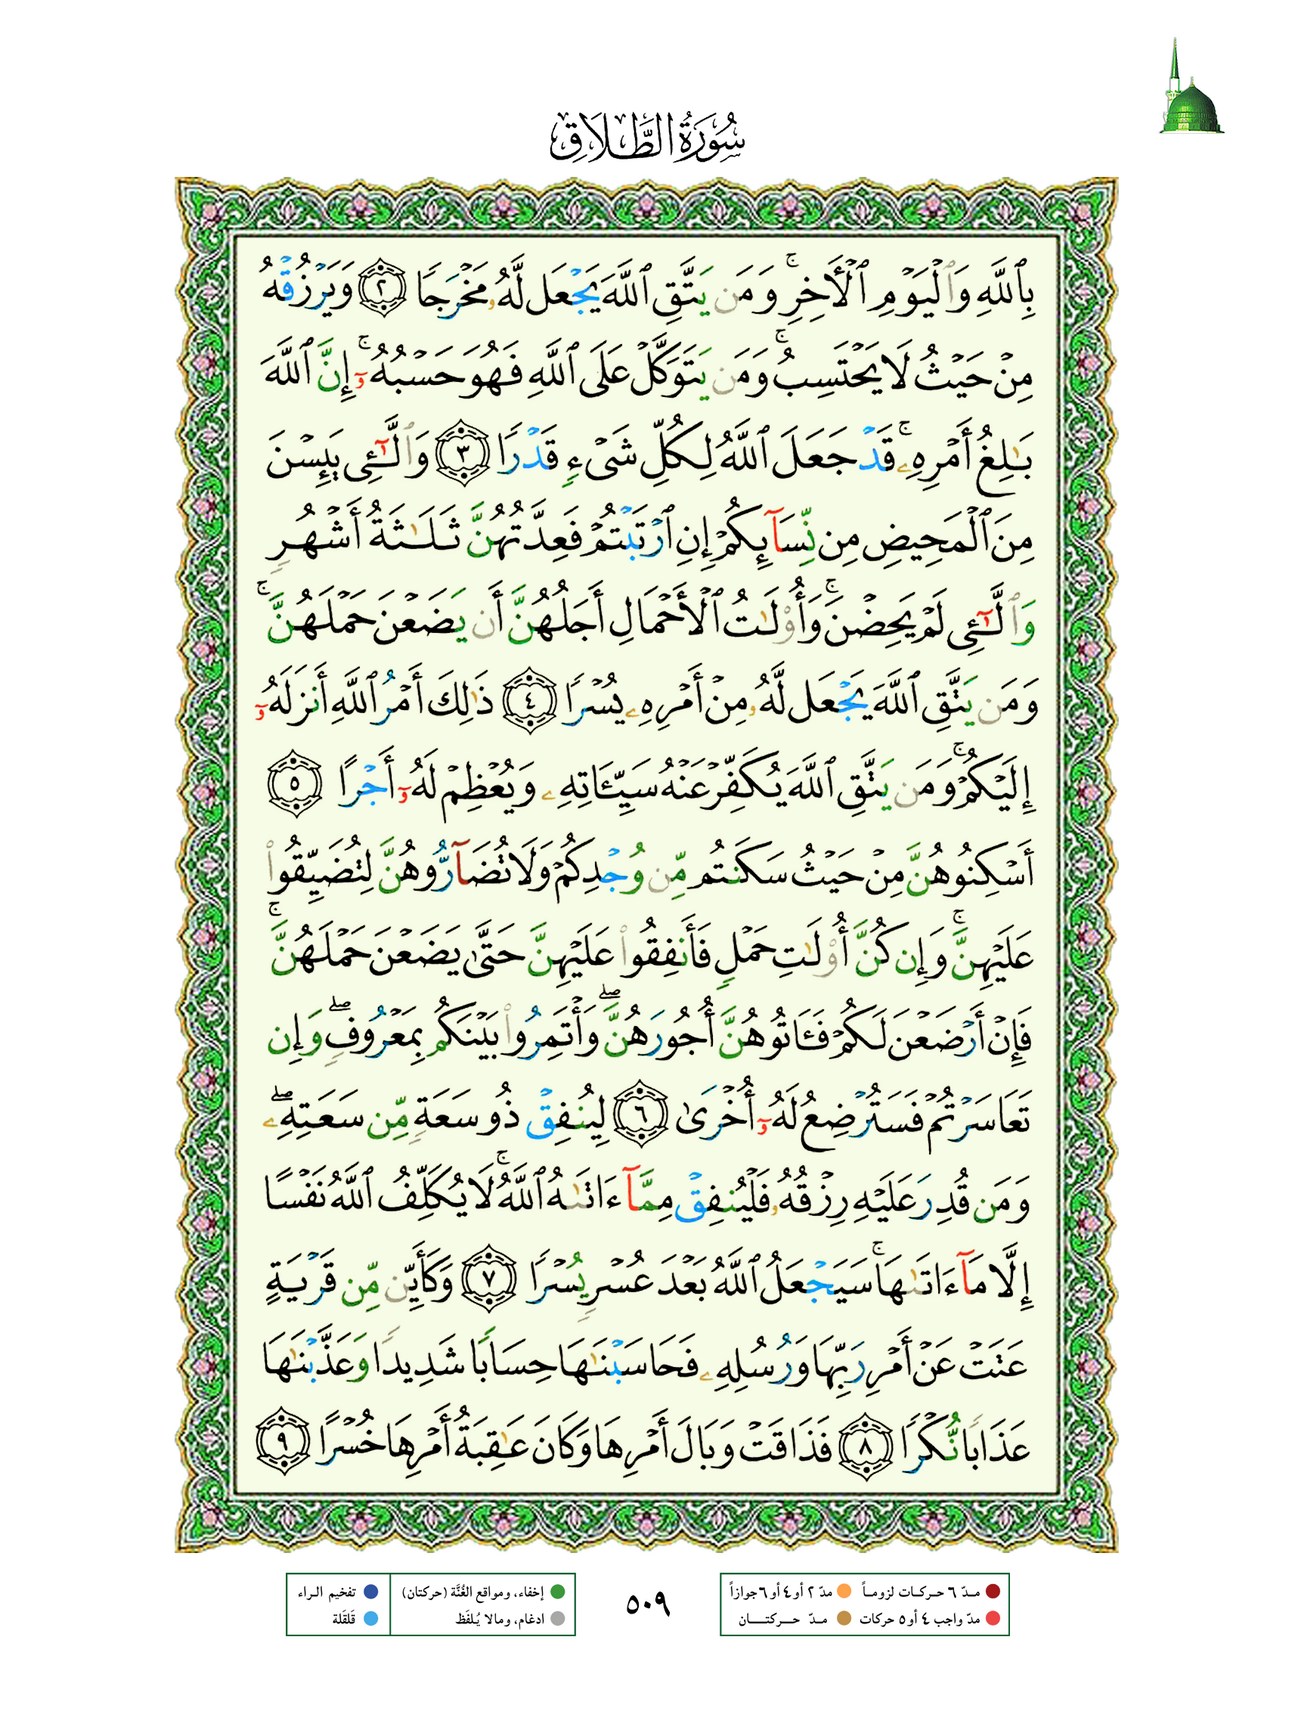 سُورَةُ الطَّلَاقِ
بِٱللَّهِ وَٱلْيَوْمِ ٱلْأَخِرِ ۚ وَمَن يَتَّقِ ٱللَّهَ يَجْعَل لَّهُۥ مَخْرَجًا ٢ وَيَرْزُقْهُ
مِنْ حَيْثُ لَا يَحْتَسِبُ ۚ وَمَن يَتَوَكَّلْ عَلَى ٱللَّهِ فَهُوَ حَسْبُهُۥٓ ۚ إِنَّ ٱللَّهَ
بَٰلِغُ أَمْرِهِۦ ۚ قَدْ جَعَلَ ٱللَّهُ لِكُلِّ شَىْءٍ قَدْرًا ٣ وَٱلَّٰٓـِٔى يَئِسْنَ
مِنَ ٱلْمَحِيضِ مِن نِّسَآئِكُمْ إِنِ ٱرْتَبْتُمْ فَعِدَّتُهُنَّ ثَلَٰثَةُ أَشْهُرٍ
وَٱلَّٰٓـِٔى لَمْ يَحِضْنَ ۚ وَأُو۟لَٰتُ ٱلْأَحْمَالِ أَجَلُهُنَّ أَن يَضَعْنَ حَمْلَهُنَّ ۚ
وَمَن يَتَّقِ ٱللَّهَ يَجْعَل لَّهُۥ مِنْ أَمْرِهِۦ يُسْرًا ٤ ذَٰلِكَ أَمْرُ ٱللَّهِ أَنزَلَهُۥٓ
إِلَيْكُمْ ۚ وَمَن يَتَّقِ ٱللَّهَ يُكَفِّرْ عَنْهُ سَيِّـَٔاتِهِۦ وَيُعْظِمْ لَهُۥٓ أَجْرًا ٥
أَسْكِنُوهُنَّ مِنْ حَيْثُ سَكَنتُم مِّن وُجْدِكُمْ وَلَا تُضَآرُّوهُنَّ لِتُضَيِّقُوا۟
عَلَيْهِنَّ ۚ وَإِن كُنَّ أُو۟لَٰتِ حَمْلٍ فَأَنفِقُوا۟ عَلَيْهِنَّ حَتَّىٰ يَضَعْنَ حَمْلَهُنَّ ۚ
فَإِنْ أَرْضَعْنَ لَكُمْ فَـَٔاتُوهُنَّ أُجُورَهُنَّ ۖ وَأْتَمِرُوا۟ بَيْنَكُم بِمَعْرُوفٍ ۖ وَإِن
تَعَاسَرْتُمْ فَسَتُرْضِعُ لَهُۥٓ أُخْرَىٰ ٦ لِيُنفِقْ ذُو سَعَةٍ مِّن سَعَتِهِۦ ۖ
وَمَن قُدِرَ عَلَيْهِ رِزْقُهُۥ فَلْيُنفِقْ مِمَّآ ءَاتَىٰهُ ٱللَّهُ ۚ لَا يُكَلِّفُ ٱللَّهُ نَفْسًا
إِلَّا مَآ ءَاتَىٰهَا ۚ سَيَجْعَلُ ٱللَّهُ بَعْدَ عُسْرٍ يُسْرًا ٧ وَكَأَيِّن مِّن قَرْيَةٍ
عَتَتْ عَنْ أَمْرِ رَبِّهَا وَرُسُلِهِۦ فَحَاسَبْنَٰهَا حِسَابًا شَدِيدًا وَعَذَّبْنَٰهَا
عَذَابًا نُّكْرًا ٨ فَذَاقَتْ وَبَالَ أَمْرِهَا وَكَانَ عَٰقِبَةُ أَمْرِهَا خُسْرًا ٩
مـدّ ٦ حـركـات لزومـاً مدّ ٢ أو ٤ أو ٦ جوازاً
مدّ واجب ٤ أو ٥ حركات مـدّ حـــركتـــــان
٥٠٩
إخفاء، ومواقع الغُنَّة (حركتان) تفخيم الـراء
ادغام، ومالا يُـلفَظ قلقَلة